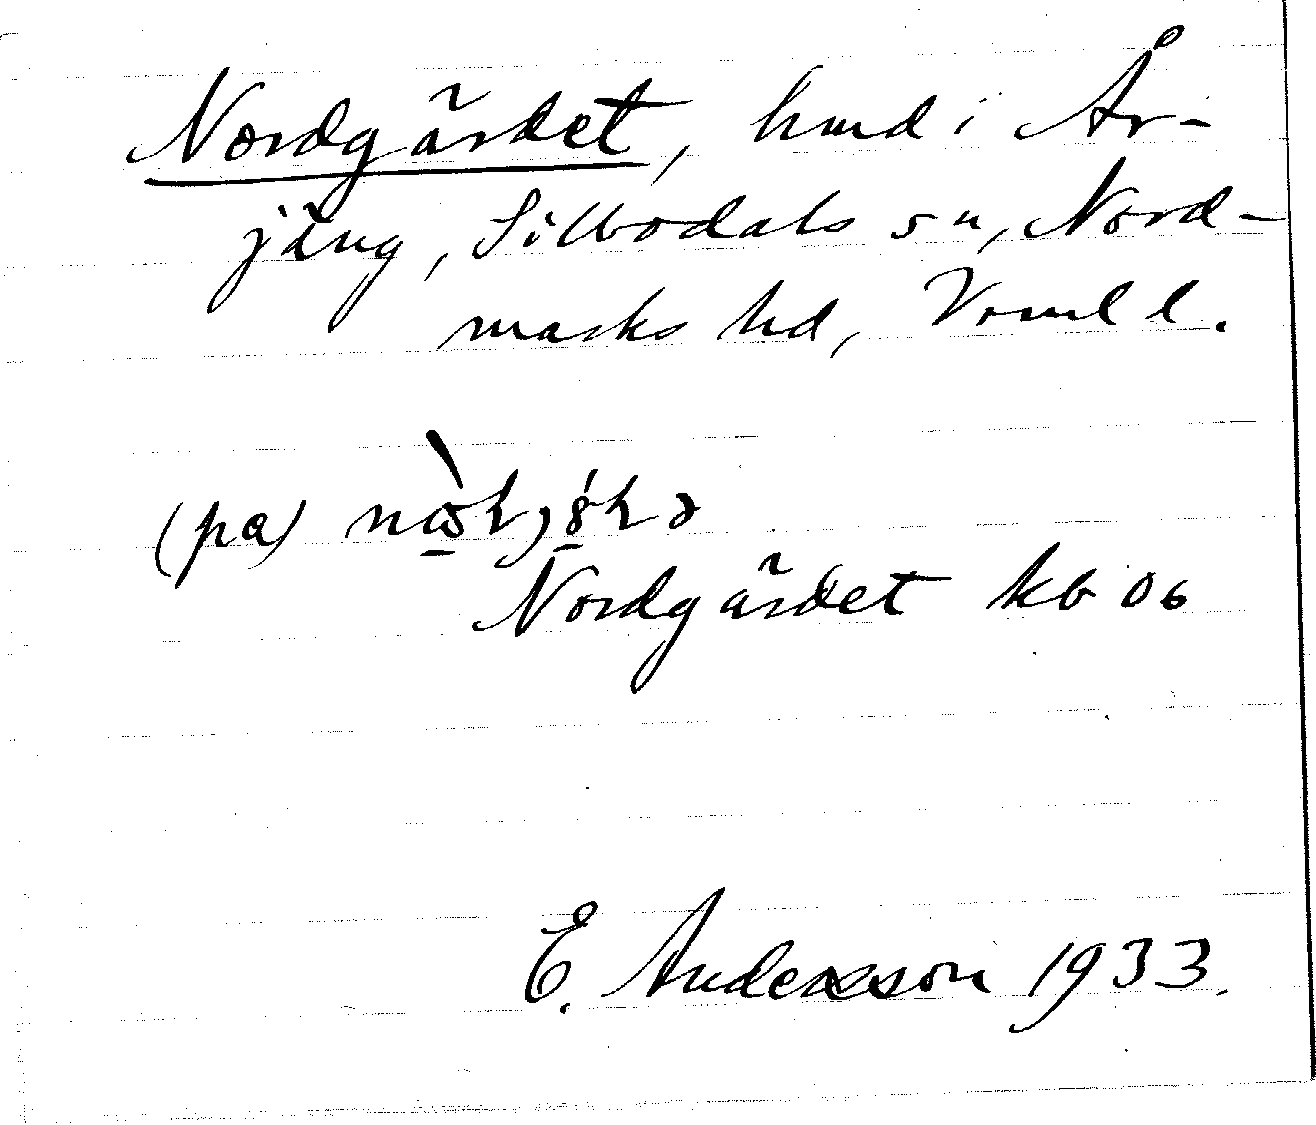 Nordgärdet, hmd i År-
jäng, Silbodals sn, Nord-
marks hd, Vrml l.
(pa)
Nordgärdet kb 06
E. Andersson 1933.